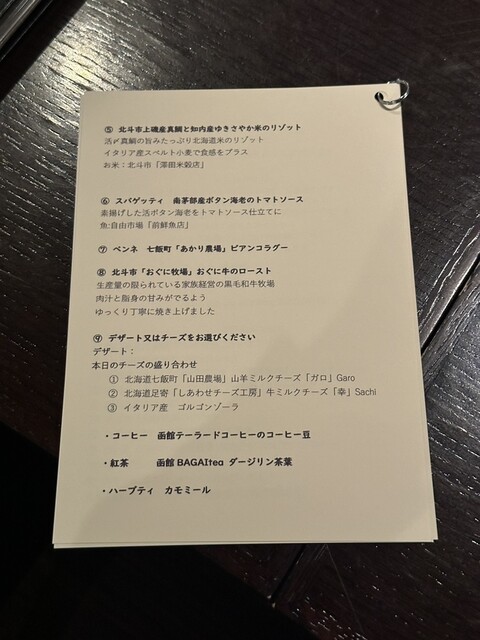 ⑤ 北斗市上磯産真鯛と知内産ゆきさやか米のリゾット
活〆真鯛の旨みたっぷり北海道米のリゾット
イタリア産スペルト小麦で食感をプラス
お米：北斗市「澤田米穀店」
⑥ スパゲッティ 南茅部産ボタン海老のトマトソース
素揚げした活ボタン海老をトマトソース仕立てに
魚:自由市場「前鮮魚店」
⑦ ペンネ 七飯町「あかり農場」ビアンコラグー
⑧ 北斗市「おぐに牧場」おぐに牛のロースト
生産量の限られている家族経営の黒毛和牛牧場
肉汁と脂身の甘みがでるよう
ゆっくり丁寧に焼き上げました
⑨ デザート又はチーズをお選びください
デザート：
本日のチーズの盛り合わせ
① 北海道七飯町「山田農場」山羊ミルクチーズ「ガロ」Garo
② 北海道足寄「しあわせチーズ工房」牛ミルクチーズ「幸」Sachi
③ イタリア産 ゴルゴンゾーラ
・コーヒー 函館テーラードコーヒーのコーヒー豆
・紅茶 函館BAGAItea ダージリン茶葉
・ハーブティ カモミール